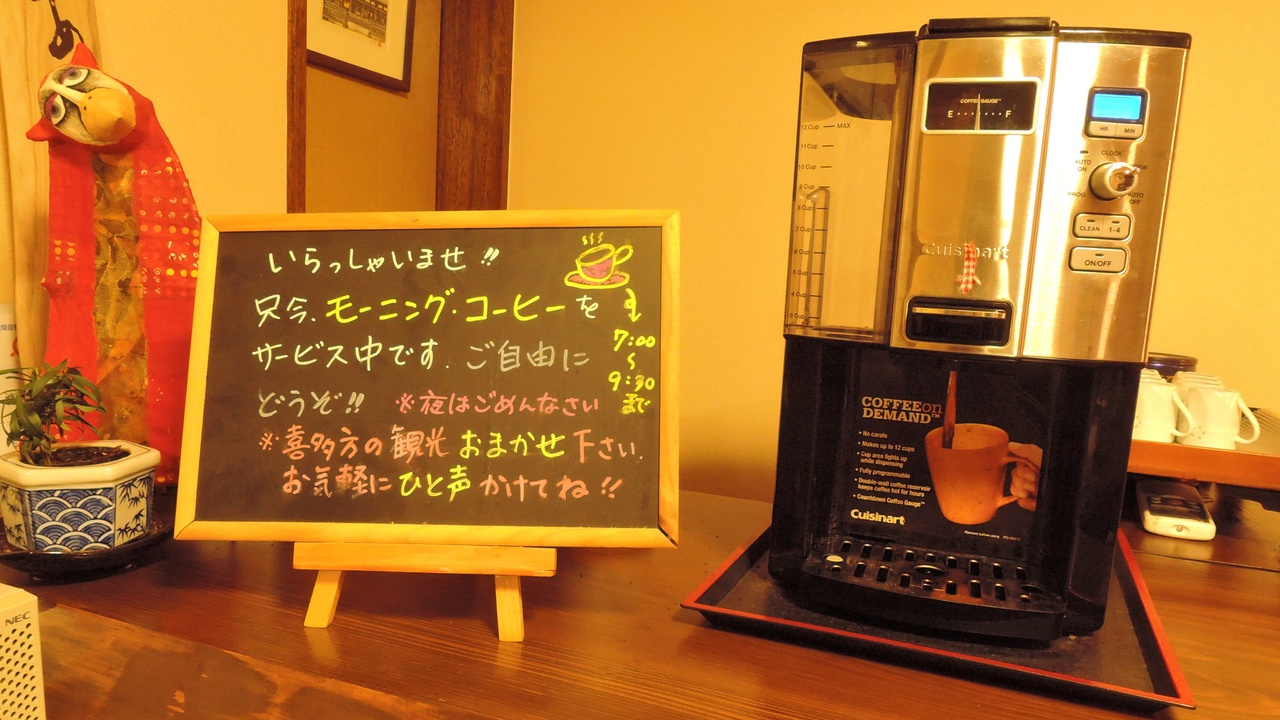 いらっしゃいませ!!
只今、モーニング・コーヒーを
サービス中です。ご自由に
どうぞ!! ※夜はごめんなさい
※喜多方の観光おまかせ下さい。
お気軽にひと声かけてね!!
7:00
〜
9:30
まで
NEC
12 Cup MAX
11 Cup
10 Cup
9 Cup
8 Cup
7 Cup
6 Cup
5 Cup
4 Cup
COFFEE GAUGE™
E F
HR MIN
CLOCK
AUTO ON
PROG
AUTO OFF
CLEAN 1-4
ON/OFF
Cuisinart
COFFEE on
DEMAND™
• No carafe
• Makes up to 12 cups
• Cup area lights up
while dispensing
• Fully programmable
• Double-wall coffee reservoir
keeps coffee hot for hours
• Countdown Coffee Gauge™
Cuisinart